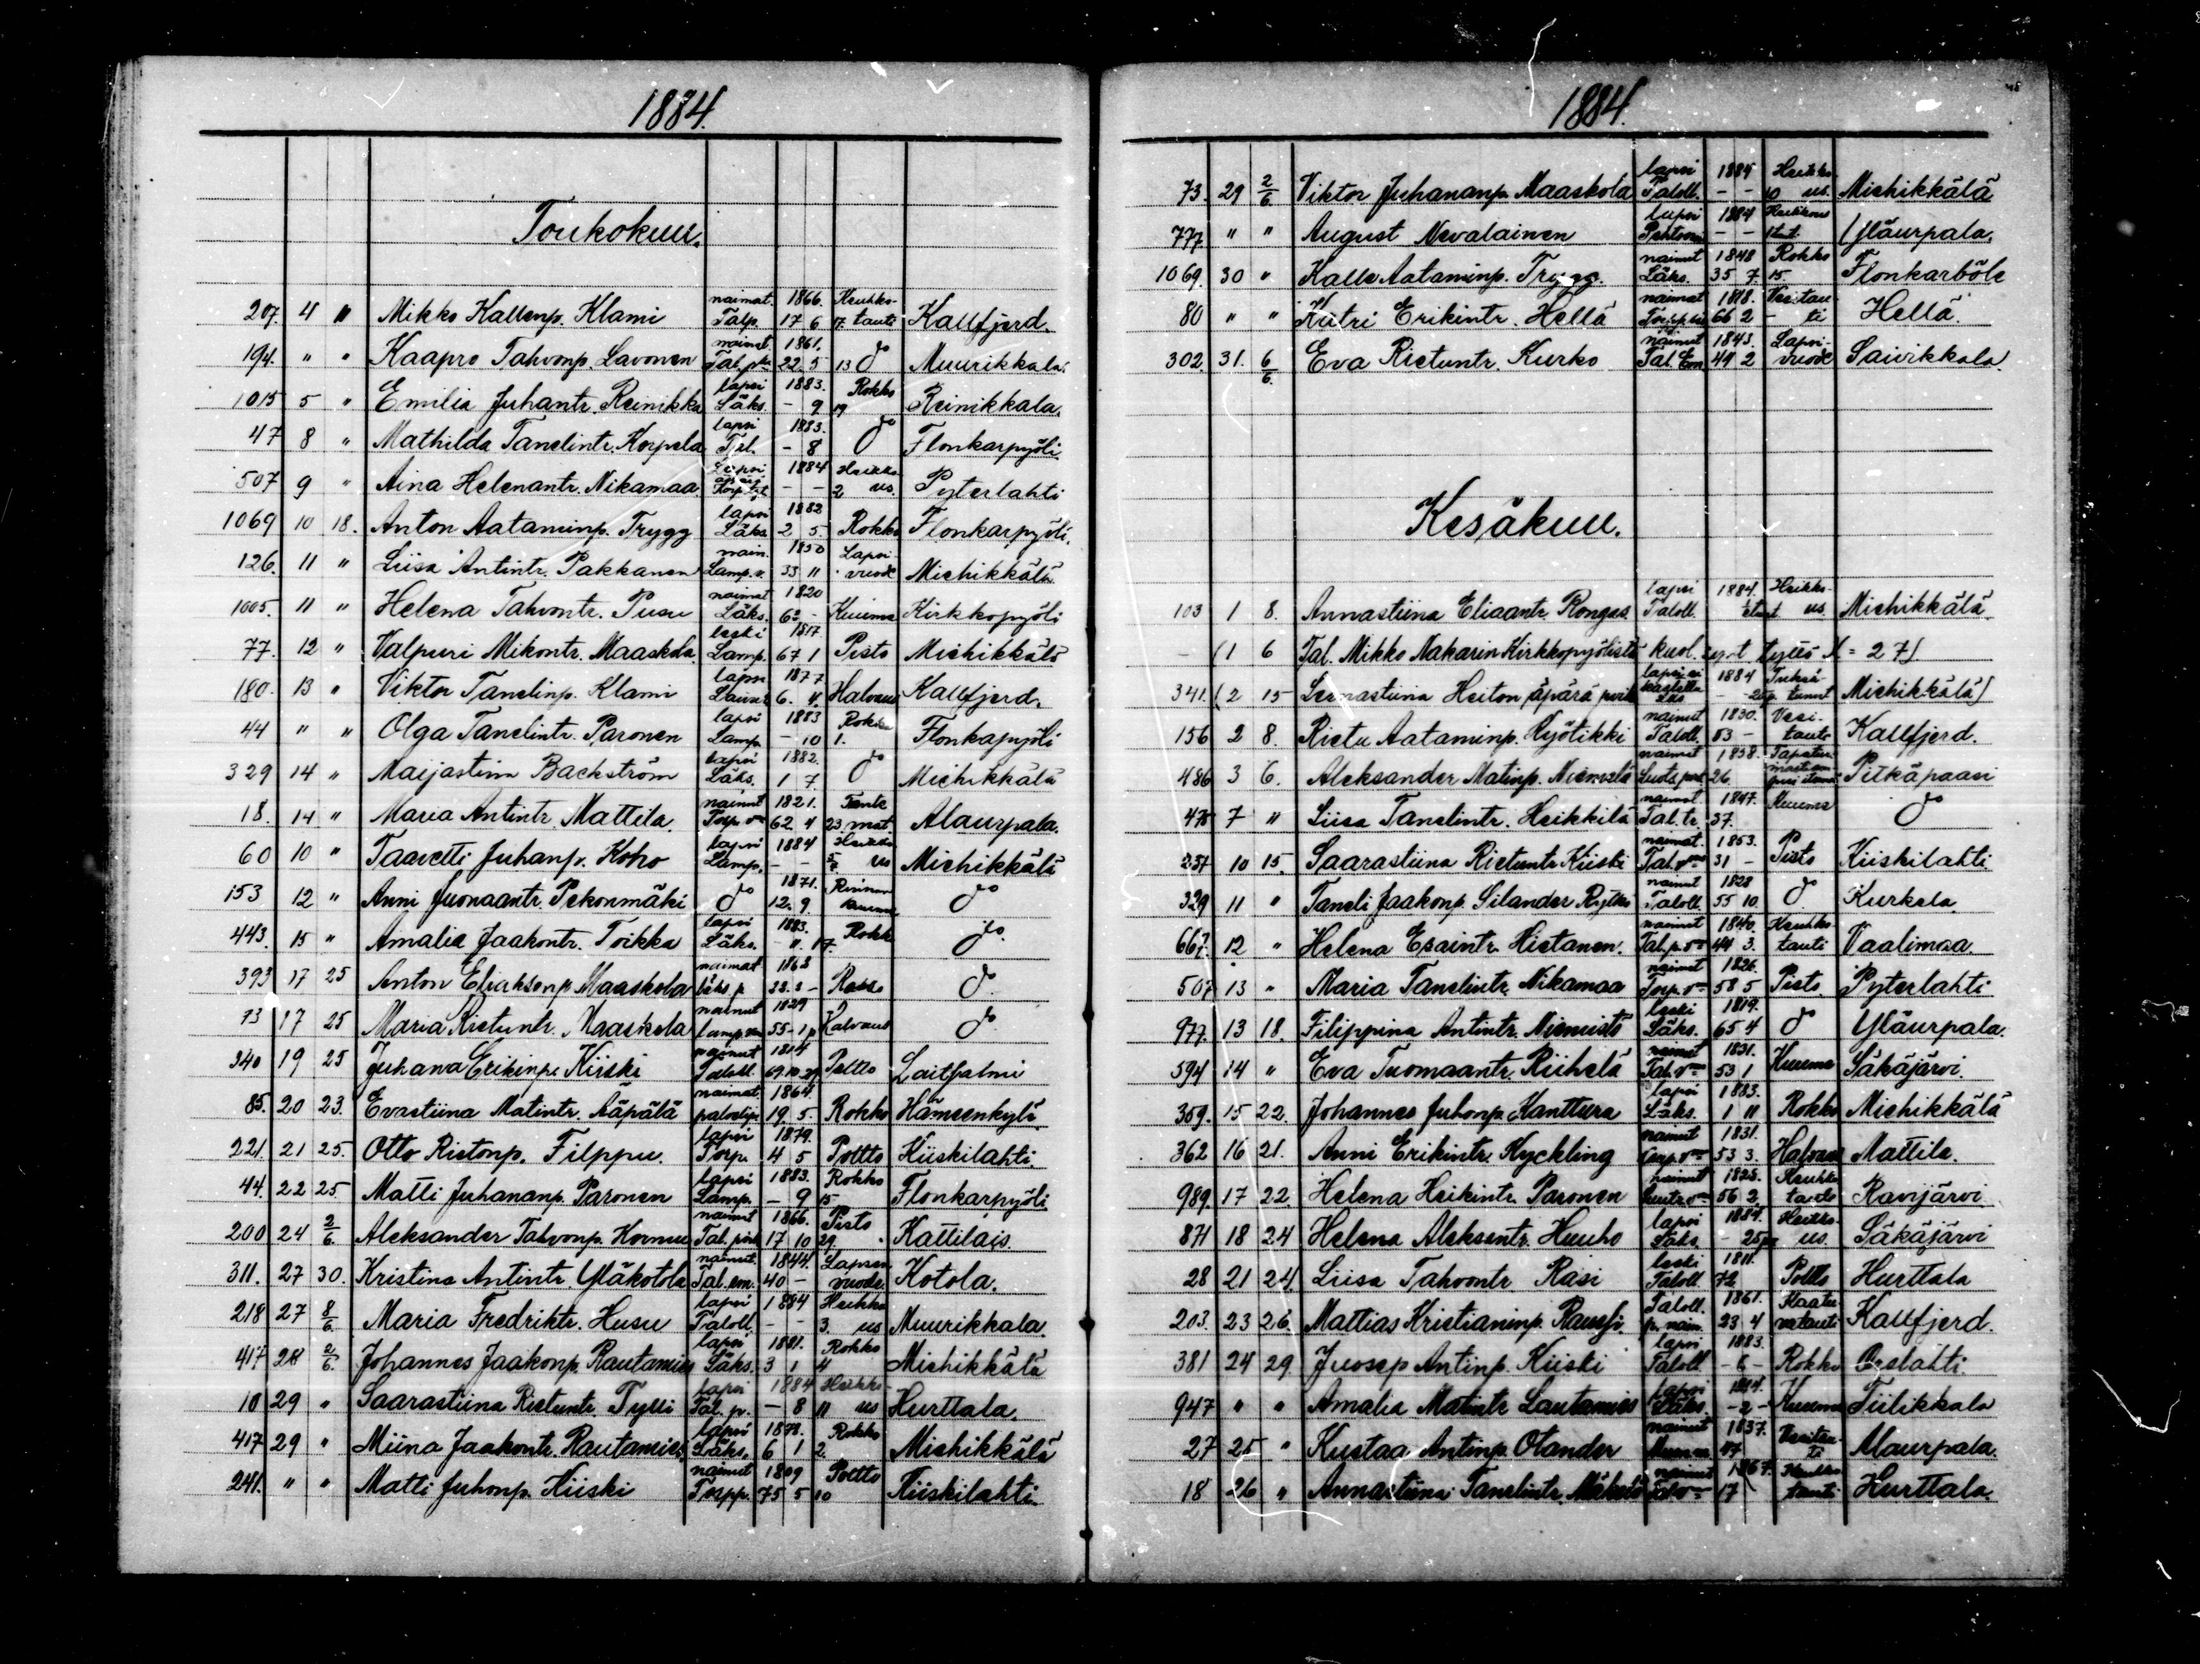 1884.
Toukokuu.
207. 4 " Mikko Kallenp. Klami naimat. Talp. 1866. 17 6 7. Keuhkotauti Kallfjerd.
194. " " Kaapro Tahvonp. Lavonen naimat 1861. 22 5 13 do Muurikkala.
1015 5 " Emilia Juhantr. Reinikka lapsi Läks. 1883. - 9 19 Rokko Reinikkala.
47 8 " Mathilda Tanelintr. Korpela lapsi Tal. 1883. - 8 do Flonkarpyöli.
507 9 " Aina Helenantr. Nikamaa Lapsi 1884 - - 2 Heikkous. Pyterlahti
1069 10 18. Anton Aataminp. Trygg lapsi Läks 1882 2 5 Rokko Flonkarpyöli.
126. 11 " Liisa Antintr. Pakkanen nain. Lamp.v. 1850 33 11 Lapsivuode Miehikkälä
1005. 11 " Helena Tahvontr. Pusu naimat Läks. 1820 63 - Kuume Kirkkopyöli
77. 12 " Valpuri Mikontr. Maaskola leski Lamp. 1817 67 1 Pisto Miehikkälä
180. 13 " Viktor Tanelinp. Klami lapsi 1877 6. 4. Halvaus Kallfjerd.
44 " " Olga Tanelintr. Paronen lapsi Lamp. 1883 - 10 1. Rokko Flonkapyöli
329 14 " Maijastiina Backström lapsi Läks. 1882. 1 7. do Miehikkälä
18. 14 " Maria Antintr. Mattila. naimat Torp. vmo 1821. 62 4 23 Alaurpala.
60 10 " Taavetti Juhanp. Koho lapsi Lamp. 1884 - - Heikkous Miehikkälä
153 12 " Anni Juonaantr. Pekonmäki do 1871. 12. 9 do
443. 15 " Amalia Jaakontr. Toikka lapsi Läks. 1883. - 11. 17. Rokk do
393 17 25 Anton Eliaksenp. Maaskola naimat 1862 do
73 17 25 Maria Rietuntr. Maaskola naimut 1829 55 - 1 Halvaus do
340 19 25 Juhana Erikinp. Kiiski naimut Taloll. 1814 69. 10. 29 Poltto Laitsalmi
85. 20 23. Evastiina Matintr. Ääpälä naimat. 1864. 19 5. Rokko Hämeenkylä
221. 21 25. Otto Ristonp. Filppu. lapsi Torp. 1879. 4 5 Poltto Kiiskilahti.
44. 22 25 Matti Juhananp. Paronen lapsi Lamp. 1883. - 9 15 Rokko Flonkarpyöli
200 24 2/6. Aleksander Tahvonp. Kornuu naimat 1866. 17 10 29. Pisto Kattilais.
311. 27 30. Kristina Antintr. Yläkotola naimut. Tal. em. 1844. 40 - Lapsenvuode. Kotola.
218 27 8/6. Maria Fredriktr. Husu lapsi Taloll. 1884 - - 3. Heikkous Muurikkala.
417 28 2/6. Johannes Jaakonp. Rautamies lapsi Läks. 1881. 3 1 4 Rokko Miehikkälä
10 29 " Saarastiina Rietuntr. Tylli lapsi Tal. p. 1884 - 8 11 Heikkous Hurttala.
417 29 " Miina Jaakontr. Rautamies. lapsi Läks. 1878. 6 1 2. Rokko Miehikkälä
241. " " Matti Juhonp. Kiiski naimut Torpp. 1809 75 5 10 Poltto Kiiskilahti.
1884.
73. 29 2/6. Viktor Juhananp. Maaskola lapsi Taloll. 1884 - - 10 Heikkous. Miehikkälä
777 " " August Nevalainen lapsi 1884 - - Heikkous Yläurpala.
1069. 30 " Kalle Aataminp. Trygg. naimut Läks. 1848 35 7 15 Rokko Flonkarböle
80 " " Kiitri Erikintr. Hellä naimat 1818. 66 2 - Vesitauti Hellä.
302. 31. 6/6. Eva Rietuntr. Kurko naimut Tal. Em 1843. 41 2 Lapsivuode Saivikkala.
Kesäkuu.
103 1 8. Annastiina Eliaantr. Rongas lapsi Taloll. 1884. Heikkous. Miehikkälä.
- (1 6 Tal. Mikko Nakarin Kirkkopyölistä kuol. synt tyttö N = 27)
341. (2 15 Leenastiina Heiton äpärä lapsi ei kastettu 1884 Miehikkälä)
156 2 8. Rietu Aataminp. Ryötikki naimut Taloll. 1830. 53 - Vesitauti Kallfjerd.
486 3 6. Aleksander Matinp. Niemelä naimut 1858. 26 Pitkäpaasi
475 7 " Liisa Tanelintr. Heikkilä naimat. Tal. tr. 1847. 37. Kuume do
237 10 15. Saarastiina Rietuntr. Kiiski naimat. 1853. 31 - Pisto Kiiskilahti.
329 11 " Taneli Jaakonp. Silander naimut Taloll. 1828 55 10. do Kurkela.
667. 12 " Helena Esaintr. Hietanen. naimut 1840. 44 3. Keuhkotauti Vaalimaa.
507 13 " Maria Tanelintr. Nikamaa naimut Torp. vmo 1826. 58 5 Pisto Pyterlahti
977. 13 18. Filippina Antintr. Niemistö leski Läks. 1819. 65 4 do Yläurpala.
594 14 " Eva Tuomaantr. Riihelä naimut 1831. 53 1 Kuume Säkäjärvi.
359. 15 22. Johannes Juhonp. Kanttura lapsi Läks. 1883. 1 11 Rokko Miehikkälä
362 16 21. Anni Erikintr. Kyckling naimut 1831. 53 3. Halvaus Mattila.
989. 17 22. Helena Heikintr. Paronen naimut 1828. 56 2. Keuhkotauti Ravijärvi.
871 18 24 Helena Aleksantr. Huuho lapsi Läks. 1884. - 25 pv Heikkous. Säkäjärvi
28 21 24. Liisa Tahvontr Räsi leski Taloll. 1811. 72 Poltto Hurttala
203. 23 26. Mattias Kristianinp. Taloll. p. nain. 1861. 23 4 Kaatuvatauti Kallfjerd.
381 24 29. Juosep Antinp. Kiiski lapsi Taloll. 1883. - 6 - Rokko Orslahti.
947 " " Amalia Matintr Lautamies lapsi Läks. 1884. - 2 - Kuume Tiilikkala
27 25 " Kustaa Antinp. Olander naimut 1837. 47 Vesitauti Alaurpala.
18 26 " Annastiina Tanelintr. naimut 1867. 17 Keuhkotauti Hurttala.